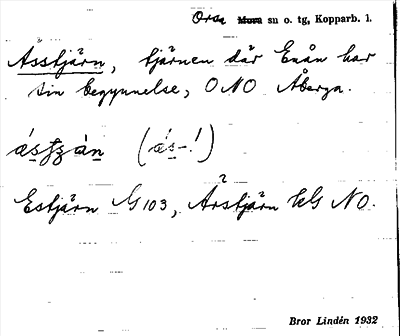 Orsa ~~Mora~~ sn o. tg, Kopparb. l.
Åsstjärn, tjärnen där Enån har
sin begynnelse, ONO Åberga.
(ás-!)
Estjärn G 103, Årstjärn NO.
Bror Lindén 1932